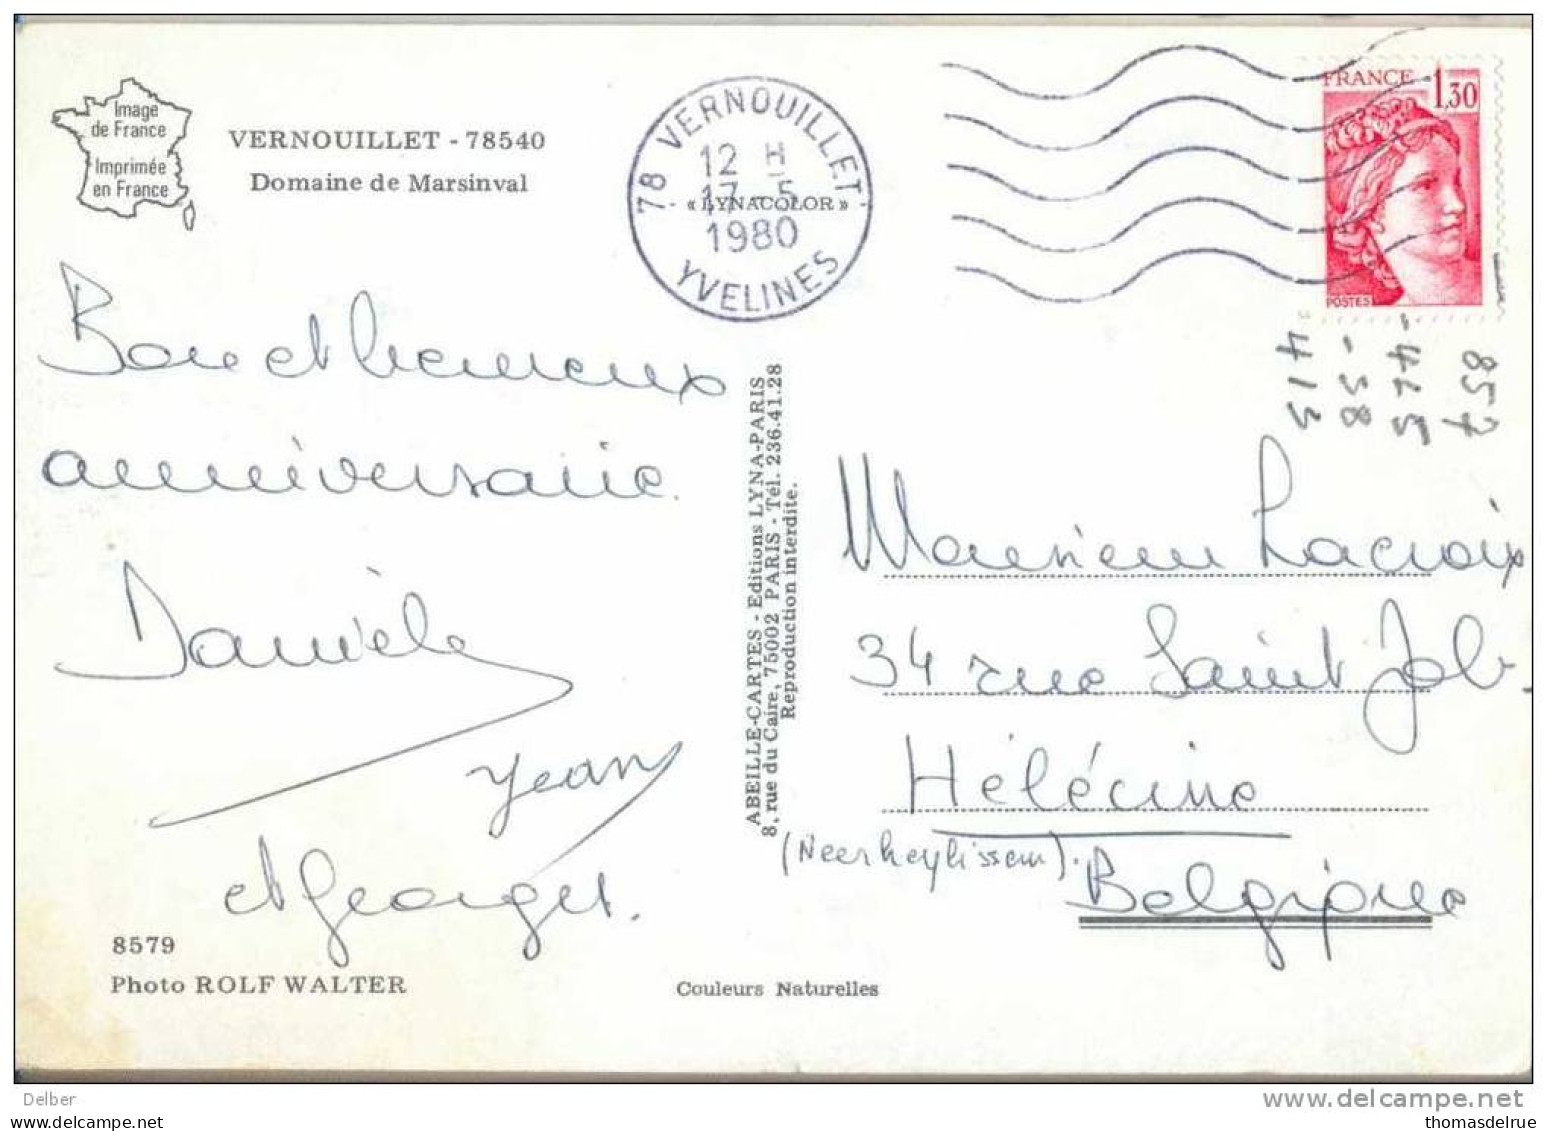 Image
de France
Imprimée
en France
VERNOUILLET - 78540
Domaine de Marsinval
78 VERNOUILLET
12 H
17-5
1980
YVELINES
« LYNACOLOR »
FRANCE 1,30
POSTES
857
-445
-58
413
Bon et heureux
anniversaire.
Danièle
Jean
et Georges.
ABEILLE-CARTES - Editions LYNA-PARIS
8, rue du Caire, 75002 PARIS - Tél. 236.41.28
Reproduction interdite.
Monsieur Lacroix
34 rue Saint Job.
Hélécine
(Neerheylissem).
Belgique
8579
Photo ROLF WALTER
Couleurs Naturelles
Delber
www.delcampe.net
thomasdelrue.delcampe.net
thomasdelrue